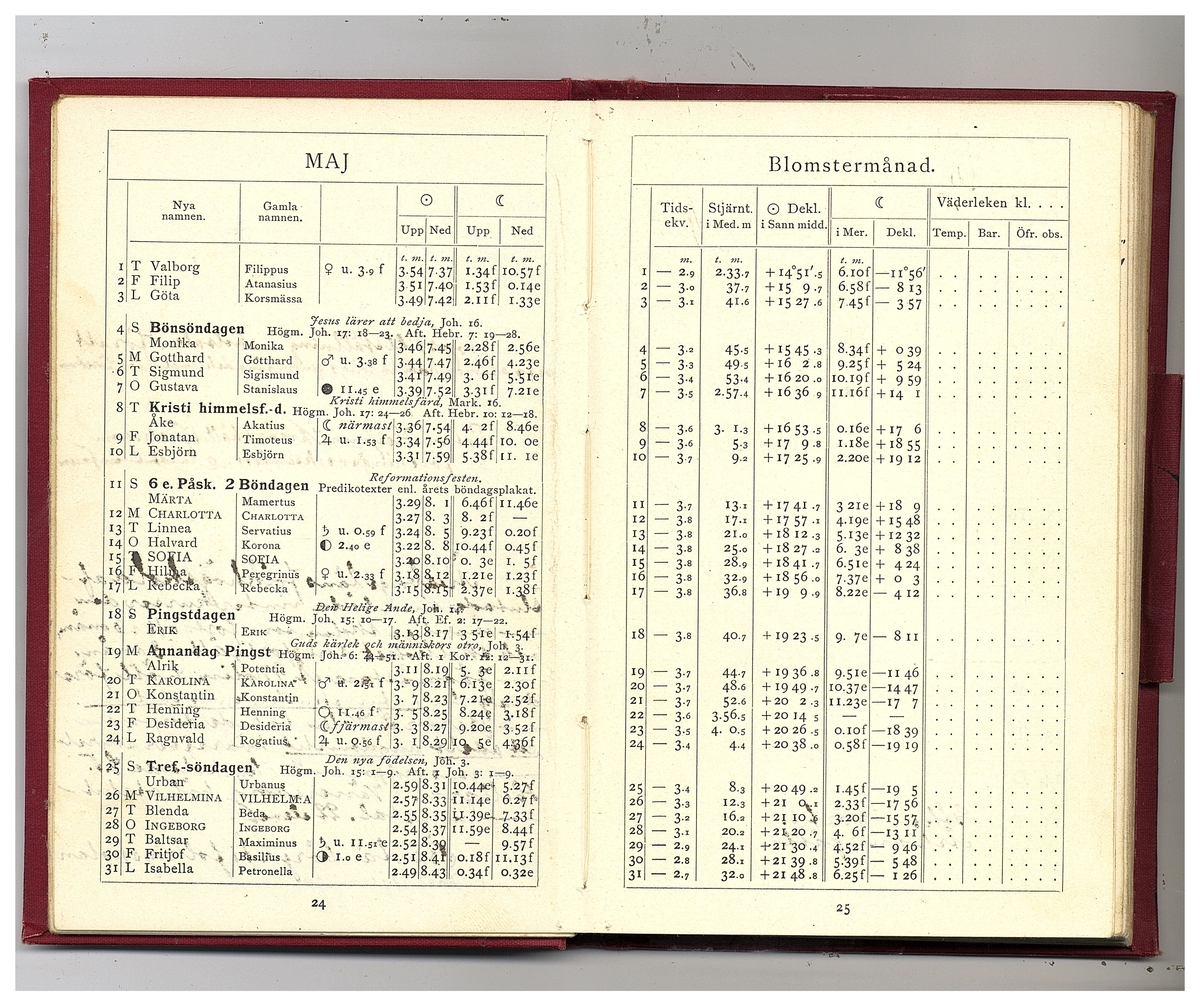 MAJ
Nya namnen. Gamla namnen. ☉ ☾
Upp Ned Upp Ned
t. m. t. m. t. m. t. m.
1 T Valborg Filippus ♀ u. 3.9 f 3.54 7.37 1.34f 10.57f
2 F Filip Atanasius 3.51 7.40 1.53f 0.14e
3 L Göta Korsmässa 3.49 7.42 2.11f 1.33e
Jesus lärer att bedja, Joh. 16.
4 S Bönsöndagen Högm. Joh. 17: 18—23. Aft. Hebr. 7: 19—28.
Monika Monika 3.46 7.45 2.28f 2.56e
5 M Gotthard Götthard ♂ u. 3.38 f 3.44 7.47 2.46f 4.23e
6 T Sigmund Sigismund 3.41 7.49 3. 6f 5.51e
7 O Gustava Stanislaus ● 11.45 e 3.39 7.52 3.31f 7.21e
Kristi himmelsfärd, Mark. 16.
8 T Kristi himmelsf.-d. Högm. Joh. 17: 24—26. Aft. Hebr. 10: 12—18.
Åke Akatius ☾ närmast 3.36 7.54 4. 2f 8.46e
9 F Jonatan Timoteus ♃ u. 1.53 f 3.34 7.56 4.44f 10. 0e
10 L Esbjörn Esbjörn 3.31 7.59 5.38f 11. 1e
Reformationsfesten.
11 S 6 e. Påsk. 2 Böndagen Predikotexter enl. årets böndagsplakat.
MÄRTA Mamertus 3.29 8. 1 6.46f 11.46e
12 M CHARLOTTA CHARLOTTA 3.27 8. 3 8. 2f —
13 T Linnea Servatius ♄ u. 0.59 f 3.24 8. 5 9.23f 0.20f
14 O Halvard Korona ◐ 2.40 e 3.22 8. 8 10.44f 0.45f
15 T SOFIA SOFIA 3.20 8.10 0. 3e 1. 5f
16 F Hilma Peregrinus ♀ u. 2.33 f 3.18 8.12 1.21e 1.23f
17 L Rebecka Rebecka 3.15 8.15 2.37e 1.38f
Den Helige Ande, Joh. 14.
18 S Pingstdagen Högm. Joh. 15: 10—17. Aft. Ef. 2: 17—22.
ERIK ERIK 3.13 8.17 3 51e 1.54f
Guds kärlek och människors otro, Joh. 3.
19 M Annandag Pingst Högm. Joh. 6: 44—51. Aft. 1 Kor. 12: 12—31.
Alrik Potentia 3.11 8.19 5. 3e 2.11f
20 T KAROLINA KAROLINA ♂ u. 2.51 f 3. 9 8.21 6.13e 2.30f
21 O Konstantin Konstantin 3. 7 8.23 7.21e 2.52f
22 T Henning Henning ○ 11.46 f 3. 5 8.25 8.24e 3.18f
23 F Desideria Desideria ☾ fjärmast 3. 3 8.27 9.20e 3.52f
24 L Ragnvald Rogatius ♃ u. 0.56 f 3. 1 8.29 10. 5e 4.36f
Den nya födelsen, Joh. 3.
25 S Tref.-söndagen Högm. Joh. 15: 1—9. Aft. 1 Joh. 3: 1—9.
Urban Urbanus 2.59 8.31 10.44e 5.27f
26 M VILHELMINA VILHELM:A 2.57 8.33 11.14e 6.27f
27 T Blenda Beda 2.55 8.35 11.39e 7.33f
28 O INGEBORG INGEBORG 2.54 8.37 11.59e 8.44f
29 T Baltsar Maximinus ♄ u. 11.51 e 2.52 8.39 — 9.57f
30 F Fritjof Basilius ◑ 1.0 e 2.51 8.41 0.18f 11.13f
31 L Isabella Petronella 2.49 8.43 0.34f 0.32e
24
Blomstermånad.
Tids-ekv. Stjärnt. i Med. m ☉ Dekl. i Sann midd. ☾ Väderleken kl. . . . .
i Mer. Dekl. Temp. Bar. Öfr. obs.
m. t. m. t. m.
1 — 2.9 2.33.7 +14°51'.5 6.10f —11°56'
2 — 3.0 37.7 +15 9.7 6.58f — 8 13
3 — 3.1 41.6 +15 27.6 7.45f — 3 57
4 — 3.2 45.5 +15 45.3 8.34f + 0 39
5 — 3.3 49.5 +16 2.8 9.25f + 5 24
6 — 3.4 53.4 +16 20.0 10.19f + 9 59
7 — 3.5 2.57.4 +16 36.9 11.16f +14 1
8 — 3.6 3. 1.3 +16 53.5 0.16e +17 6
9 — 3.6 5.3 +17 9.8 1.18e +18 55
10 — 3.7 9.2 +17 25.9 2.20e +19 12
11 — 3.7 13.1 +17 41.7 3 21e +18 9
12 — 3.8 17.1 +17 57.1 4.19e +15 48
13 — 3.8 21.0 +18 12.3 5.13e +12 32
14 — 3.8 25.0 +18 27.2 6. 3e + 8 38
15 — 3.8 28.9 +18 41.7 6.51e + 4 24
16 — 3.8 32.9 +18 56.0 7.37e + 0 3
17 — 3.8 36.8 +19 9.9 8.22e — 4 12
18 — 3.8 40.7 +19 23.5 9. 7e — 8 11
19 — 3.7 44.7 +19 36.8 9.51e —11 46
20 — 3.7 48.6 +19 49.7 10.37e —14 47
21 — 3.7 52.6 +20 2.3 11.23e —17 7
22 — 3.6 3.56.5 +20 14 5 — —
23 — 3.5 4. 0.5 +20 26.5 0.10f —18 39
24 — 3.4 4.4 +20 38.0 0.58f —19 19
25 — 3.4 8.3 +20 49.2 1.45f —19 5
26 — 3.3 12.3 +21 0.1 2.33f —17 56
27 — 3.2 16.2 +21 10.6 3.20f —15 57
28 — 3.1 20.2 +21 20.7 4. 6f —13 11
29 — 2.9 24.1 +21 30.4 4.52f — 9 46
30 — 2.8 28.1 +21 39.8 5.39f — 5 48
31 — 2.7 32.0 +21 48.8 6.25f — 1 26
25